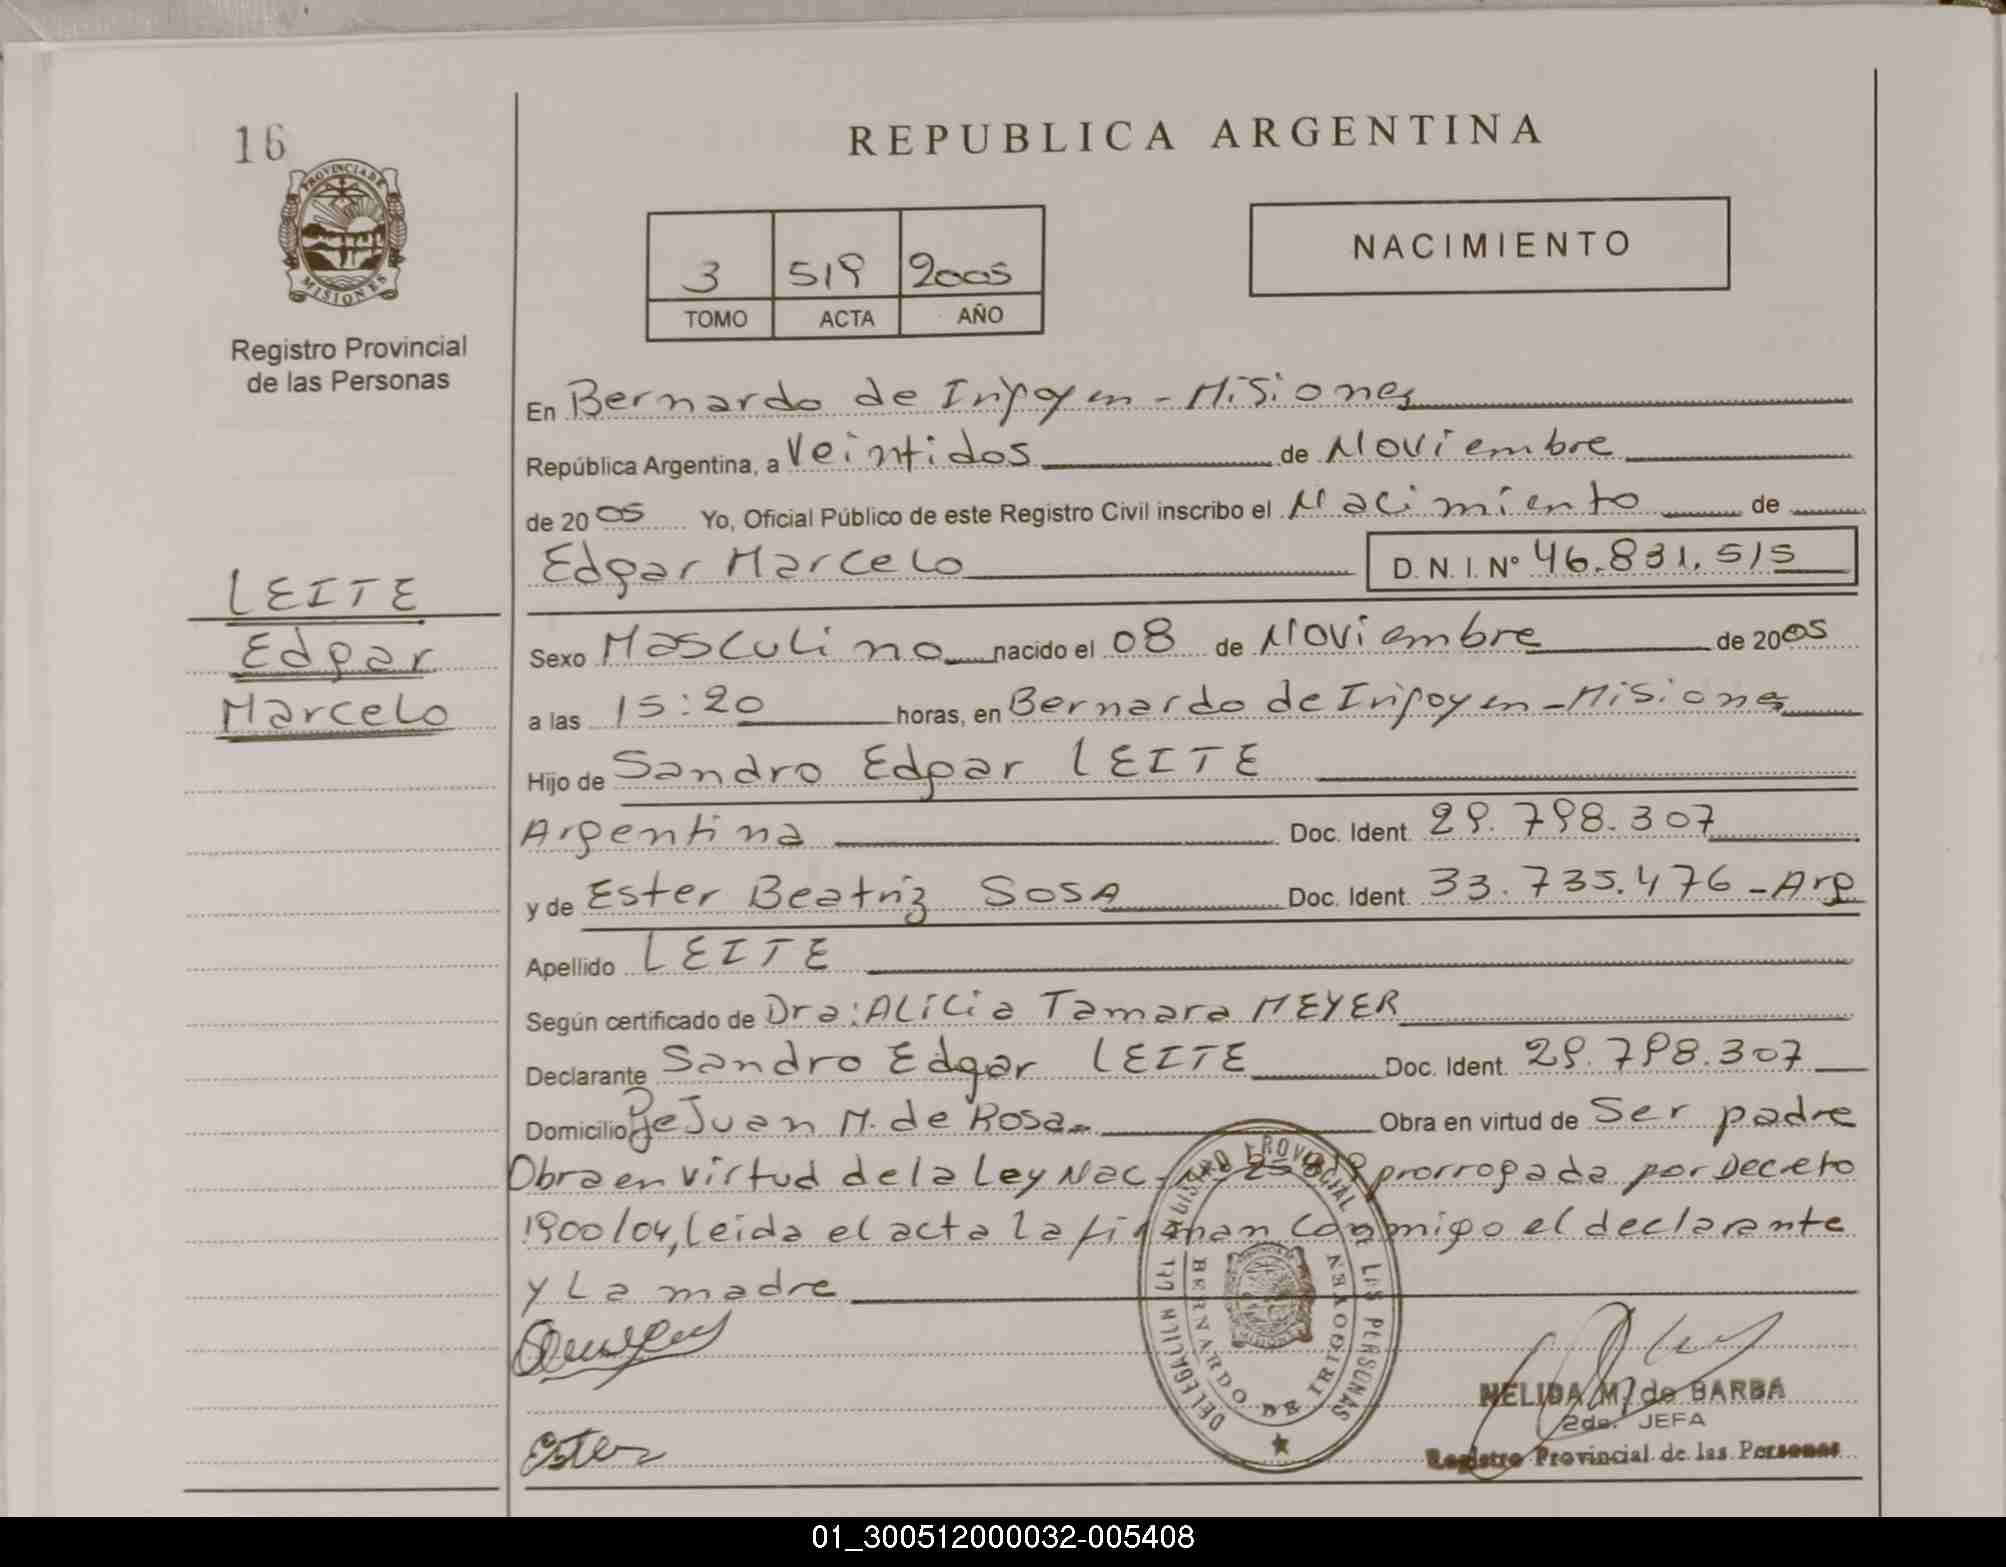 16
PROVINCIA DE
MISIONES
Registro Provincial
de las Personas
LEITE
Edgar
Marcelo
REPUBLICA ARGENTINA
NACIMIENTO
3 519 2005
TOMO ACTA AÑO
En Bernardo de Irigoyen - Misiones
República Argentina, a Veintidos de Noviembre
de 2005 Yo, Oficial Público de este Registro Civil inscribo el Nacimiento de
Edgar Marcelo D.N.I. Nº 46.831.515
Sexo Masculino nacido el 08 de Noviembre de 2005
a las 15:20 horas, en Bernardo de Irigoyen - Misiones
Hijo de Sandro Edgar LEITE
Argentina Doc. Ident. 29.798.307
y de Ester Beatriz SOSA Doc. Ident. 33.735.476 - Arg
Apellido LEITE
Según certificado de Dra: Alicia Tamara MEYER
Declarante Sandro Edgar LEITE Doc. Ident. 29.798.307
Domicilio Pje Juan M. de Rosa Obra en virtud de Ser padre
Obra en virtud de la Ley Nac. prorrogada por Decreto
1900/04, leida el acta la firman conmigo el declarante
y la madre
Ester
DELEGACION REGISTRO PROVINCIAL DE LAS PERSONAS
BERNARDO DE IRIGOYEN
NELIDA M. de BARBA
2da. JEFA
Registro Provincial de las Personas
01_300512000032-005408